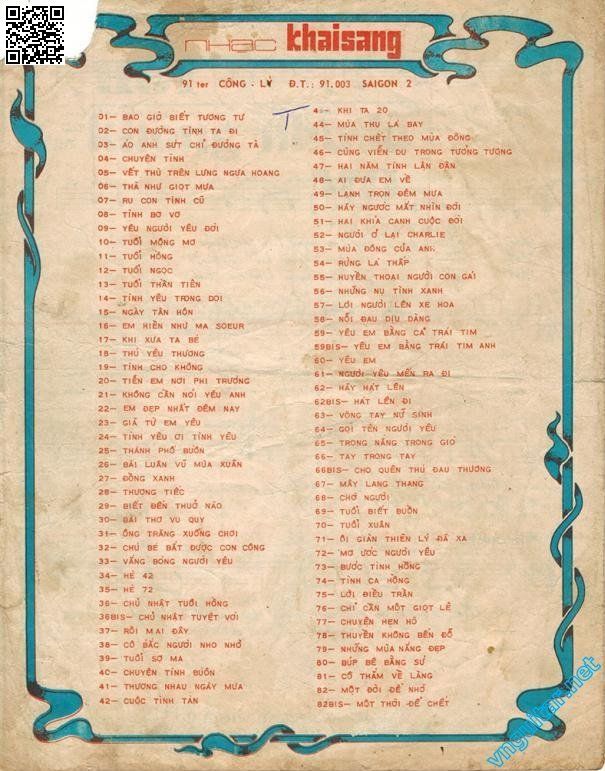 nhạc khaisang
91 ter CÔNG - LÝ Đ.T.: 91.003 SAIGON 2
01— BAO GIỜ BIẾT TƯƠNG TƯ
02— CON ĐƯỜNG TÌNH TA ĐI
03— ÁO ANH SỨT CHỈ ĐƯỜNG TÀ
04— CHUYỆN TÌNH
05— VẾT THÙ TRÊN LƯNG NGỰA HOANG
06— THÀ NHƯ GIỌT MƯA
07— RU CON TÌNH CŨ
08— TÌNH BƠ VƠ
09— YÊU NGƯỜI YÊU ĐỜI
10— TUỔI MỘNG MƠ
11— TUỔI HỒNG
12— TUỔI NGỌC
13— TUỔI THẦN TIÊN
14— TÌNH YÊU TRONG DOI
15— NGÀY TÂN HÔN
16— EM HIỀN NHƯ MA SOEUR
17— KHI XƯA TA BÉ
18— THÚ YÊU THƯƠNG
19— TÌNH CHO KHÔNG
20— TIỄN EM NƠI PHI TRƯỜNG
21— KHÔNG CẦN NÓI YÊU ANH
22— EM ĐẸP NHẤT ĐÊM NAY
23— GIÃ TỪ EM YÊU
24— TÌNH YÊU ƠI TÌNH YÊU
25— THÀNH PHỐ BUỒN
26— BÀI LUÂN VŨ MÙA XUÂN
27— ĐỒNG XANH
28— THƯƠNG TIẾC
29— BIẾT ĐẾN THUỞ NÀO
30— BÀI THƠ VU QUY
31— ÔNG TRĂNG XUỐNG CHƠI
32— CHÚ BÉ BẮT ĐƯỢC CON CÔNG
33— VẮNG BÓNG NGƯỜI YÊU
34— HÈ 42
35— HÈ 72
36— CHỦ NHẬT TUỔI HỒNG
36BIS— CHỦ NHẬT TUYỆT VỜI
37— RỒI MAI ĐÂY
38— CÔ BẮC NGƯỜI NHO NHỎ
39— TUỔI SỢ MA
40— CHUYỆN TÌNH BUỒN
41— THƯƠNG NHAU NGÀY MƯA
42— CUỘC TÌNH TÀN
T
4 — KHI TA 20
44— MÙA THU LÁ BAY
45— TÌNH CHẾT THEO MÙA ĐÔNG
46— CÙNG VIỄN DU TRONG TƯỞNG TƯỢNG
47— HAI NĂM TÌNH LẬN ĐẬN
48— AI ĐƯA EM VỀ
49— LẠNH TRỌN ĐÊM MƯA
50— HÃY NGƯỚC MẮT NHÌN ĐỜI
51— HAI KHÍA CẠNH CUỘC ĐỜI
52— NGƯỜI Ở LẠI CHARLIE
53— MÙA ĐÔNG CỦA ANH
54— RỪNG LÁ THẤP
55— HUYỀN THOẠI NGƯỜI CON GÁI
56— NHỮNG NỤ TÌNH XANH
57— LỜI NGƯỜI LÊN XE HOA
58— NỖI ĐAU DỊU DÀNG
59— YÊU EM BẰNG CẢ TRÁI TIM
59BIS— YÊU EM BẰNG TRÁI TIM ANH
60— YÊU EM
61— NGƯỜI YÊU MẾN RA ĐI
62— HÃY HÁT LÊN
62BIS— HÁT LÊN ĐI
63— VÒNG TAY NỮ SINH
64— GỌI TÊN NGƯỜI YÊU
65— TRONG NẮNG TRONG GIÓ
66— TAY TRONG TAY
66BIS— CHO QUÊN THÚ ĐAU THƯƠNG
67— MÂY LANG THANG
68— CHỜ NGƯỜI
69— TUỔI BIẾT BUỒN
70— TUỔI XUÂN
71— ÔI GIÀN THIÊN LÝ ĐÃ XA
72— MƠ ƯỚC NGƯỜI YÊU
73— BƯỚC TÌNH HỒNG
74— TÌNH CA HỒNG
75— LỜI ĐIÊU TRẦN
76— CHỈ CẦN MỘT GIỌT LỆ
77— CHUYỆN HẸN HÒ
78— THUYỀN KHÔNG BẾN ĐỖ
79— NHỮNG MÙA NẮNG ĐẸP
80— BÚP BÊ BẰNG SỨ
81— CỎ THẮM VỀ LÀNG
82— MỘT ĐỜI ĐỂ NHỚ
82BIS— MỘT THỜI ĐỂ CHẾT
vnguitar.net